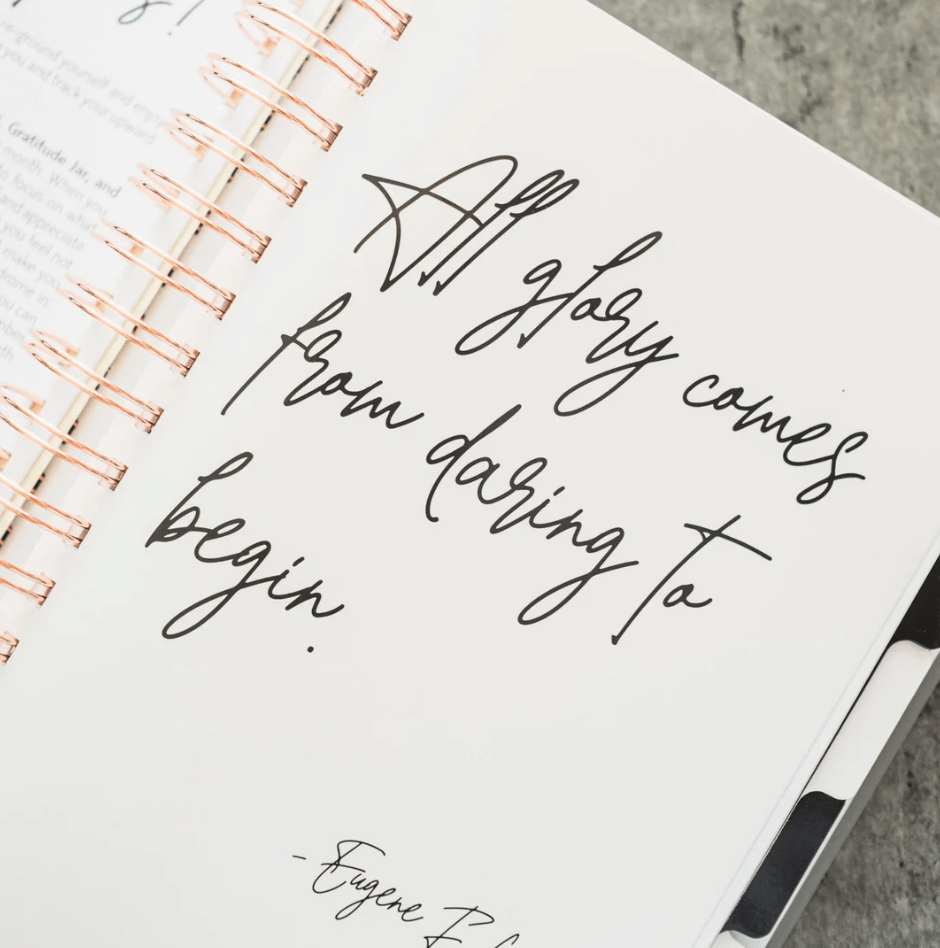 re ground yourself and enjoy
you and track your upward
Gratitude Jar, and
month. When you
to focus on what
and appreciate
you feel not
make you
drome in
ou can
All glory comes
from daring to
begin.
- Eugene